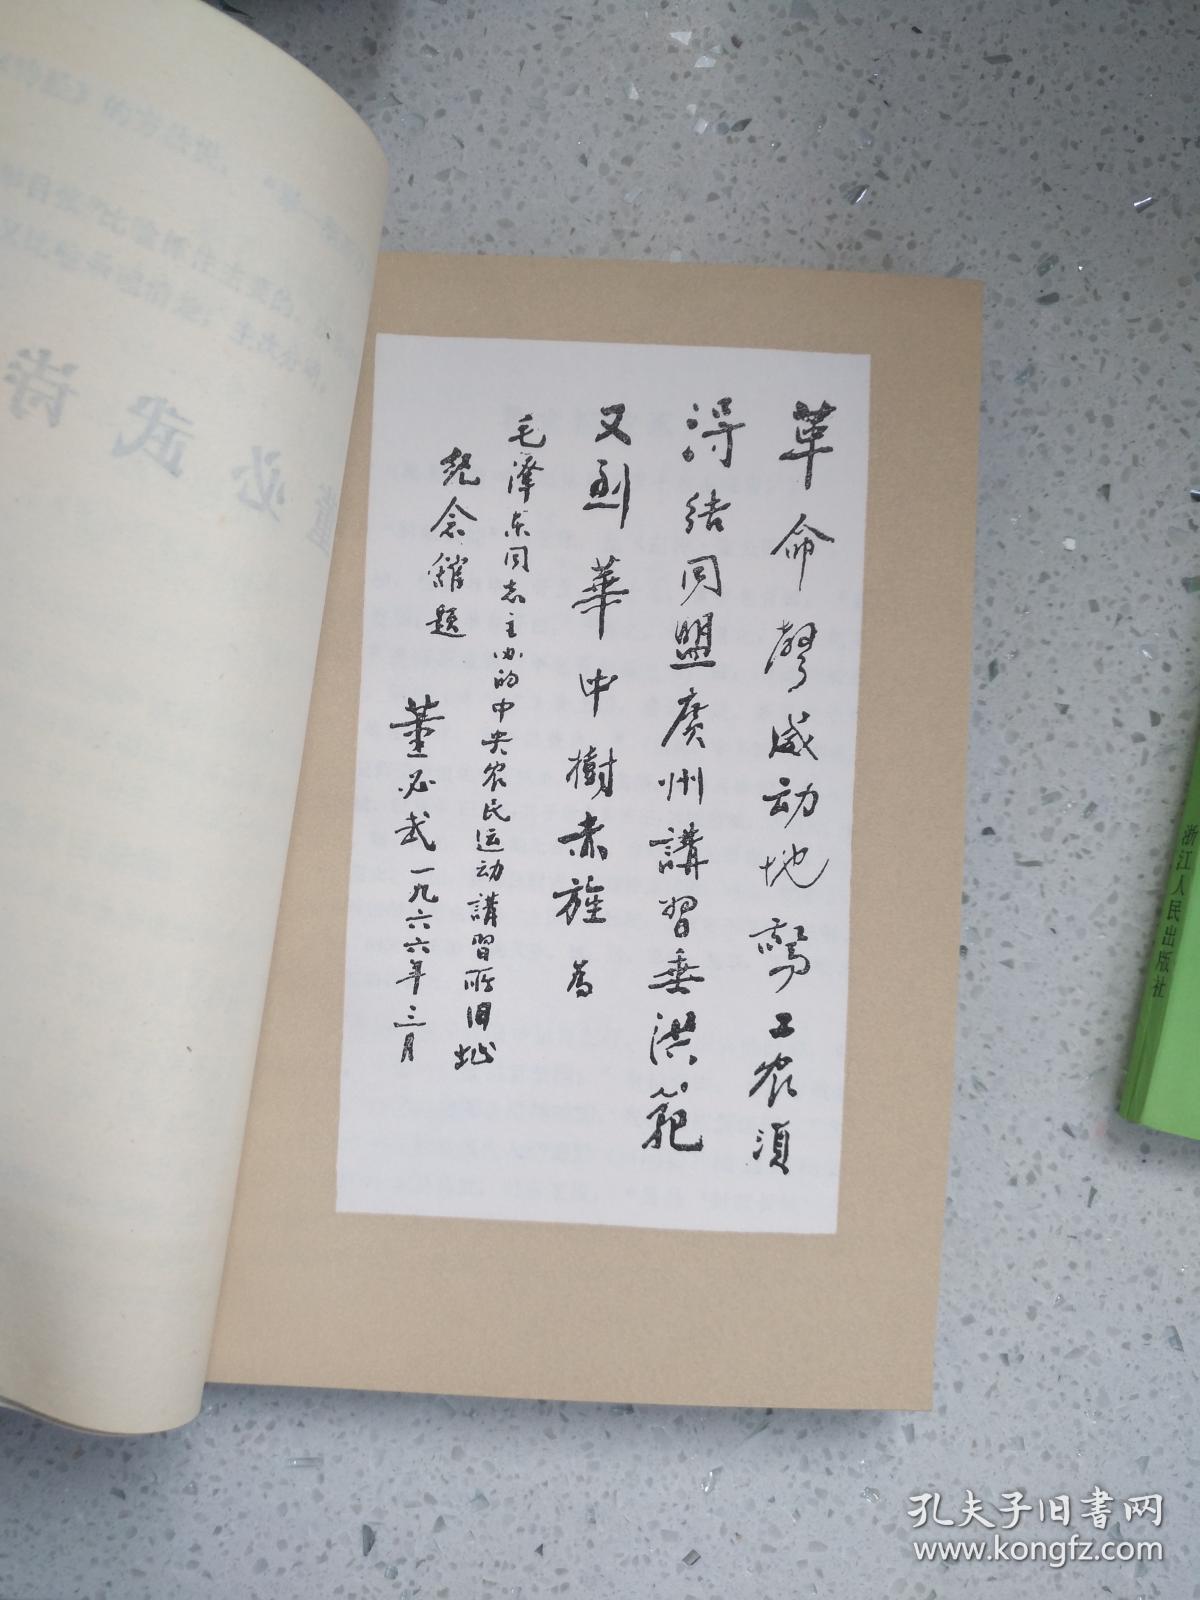 革命聲威动地驚工农須
得结同盟廣州講習垂洪範
又到華中樹赤旌 為
毛泽东同志主办的中央农民运动講習所旧址
纪念館题
董必武一九六六年三月
董必武诗
浙江人民出版社
孔夫子旧書网
www.kongfz.com